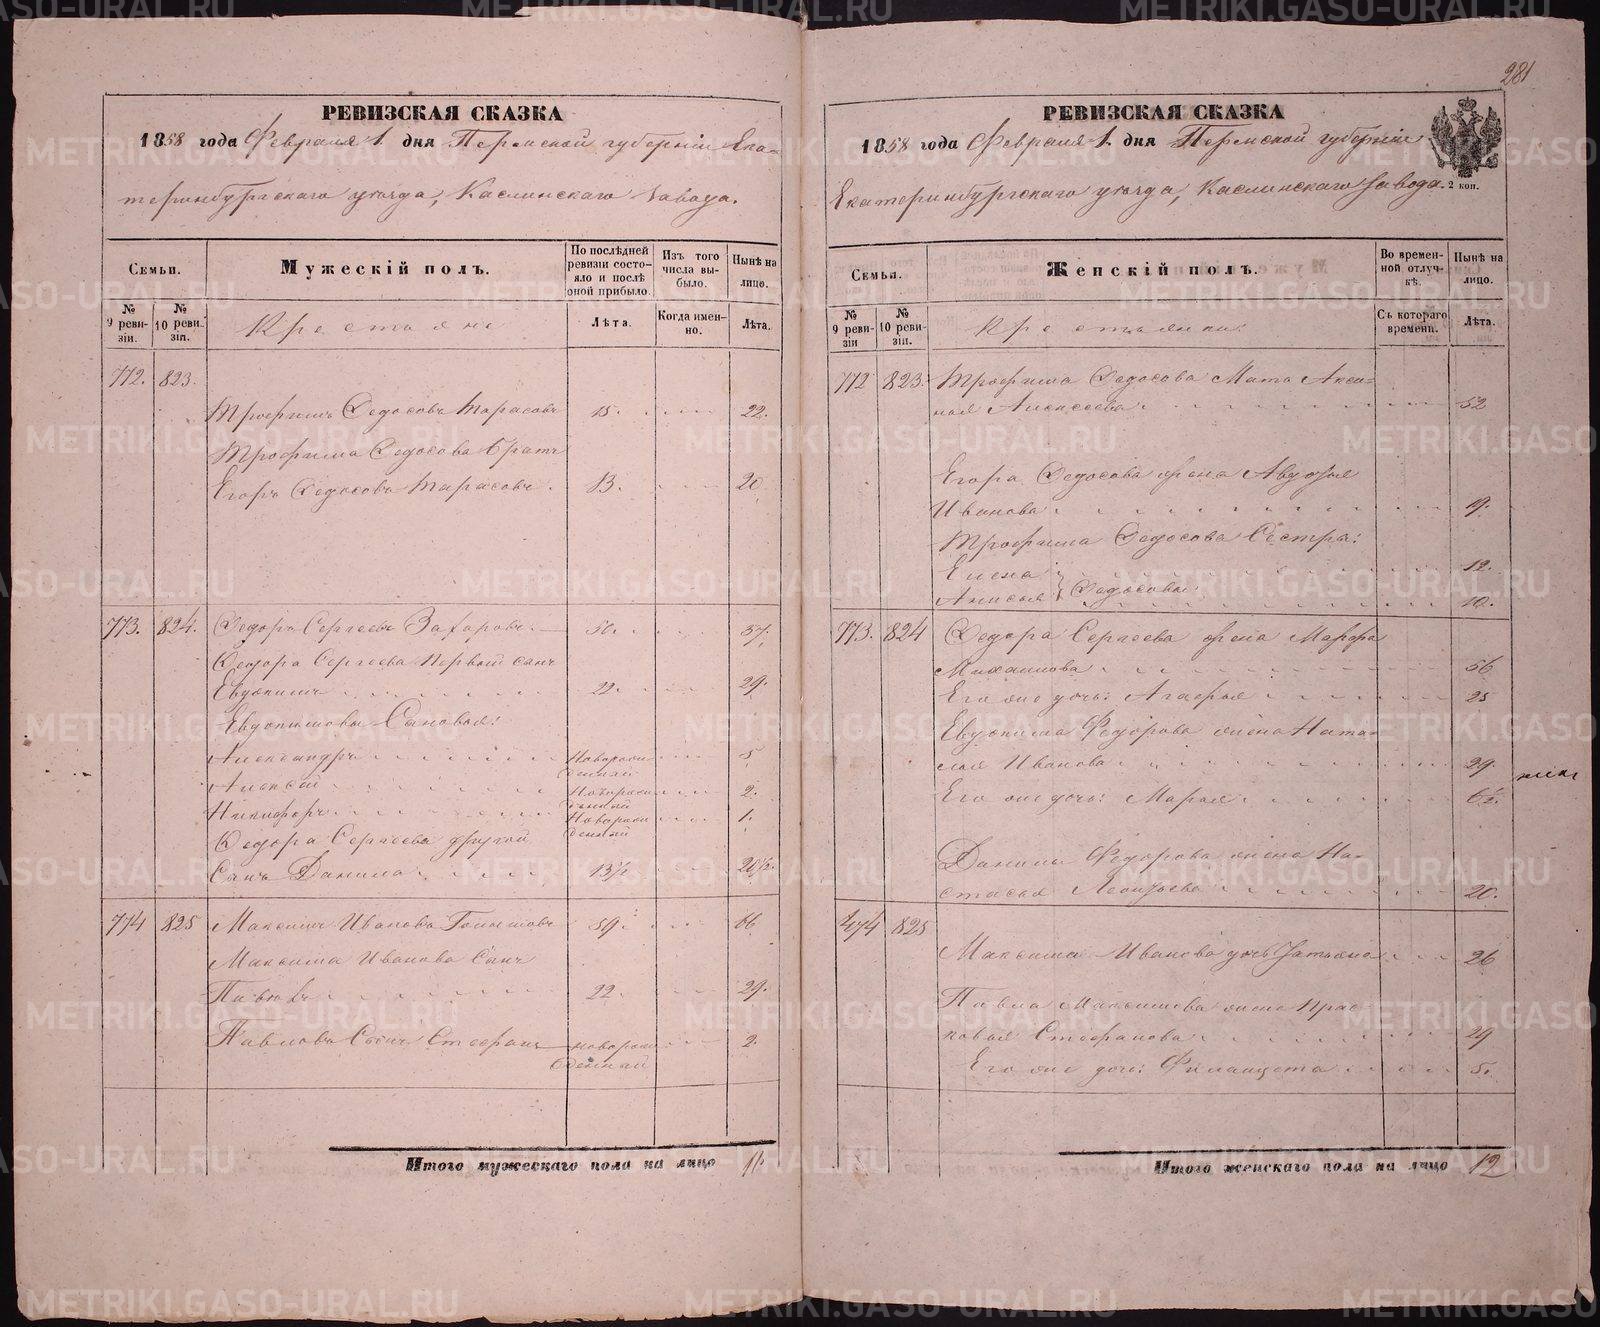 281
РЕВИЗСКАЯ СКАЗКА
1858 года Февраля 1 дня Пермской губерніи Ека-
теринбургскаго уѣзда, Каслинскаго завода.
Семьи.
Мужескій полъ.
По послѣдней ревизіи состояло и послѣ оной прибыло.
Изъ того числа выбыло.
Нынѣ на лицо.
№ 9 ревизіи.
№ 10 ревизіи.
Крестьяне
Лѣта.
Когда именно.
Лѣта.
772. 823.
Трофимъ Федосовъ Тарасовъ 15. 22.
Трофима Федосова братъ
Егоръ Федосовъ Тарасовъ. 13. 20.
773. 824. Федоръ Сергеевъ Захаровъ. 50. 57.
Федора Сергеева первый сынъ
Евдокимъ 22. 29.
Евдокимовы Сыновья:
Александръ Новорожденный 5
Алексѣй Новорожденный 2.
Никифоръ Новорожденный 1.
Федора Сергеева другой
Сынъ Данила 13½ 20½.
774 825 Максимъ Ивановъ 59. 66.
Максима Иванова Сынъ
22. 29.
Павловъ Сынъ Стефанъ новорожденный 2.
Итого мужескаго пола на лицо 11.
РЕВИЗСКАЯ СКАЗКА
1858 года Февраля 1 дня Пермской губерніи
Екатеринбургскаго уѣзда, Каслинскаго завода.
2 коп.
Семьи.
Женскій полъ.
Во временной отлучкѣ.
Нынѣ на лицо.
№ 9 ревизіи
№ 10 ревизіи.
Крестьянки:
Съ котораго времени.
Лѣта.
772 823. Трофима Федосова Мать Акси-
нья Алексеева 52
Егора Федосова жена Авдотья
Иванова 19.
Трофима Федосова Сестры:
Елена 12.
Анисья Федосовы 10.
773. 824 Федора Сергеева жена Марфа
Михаилова 56
Его же дочь: Агафья 25
Евдокима Федорова жена Ната-
лья Иванова 29.
Его же дочь: Марья 6½.
Данилы Федорова жена На-
стасья Леонтьева 20.
774 825
Максима Иванова дочь Татьяна 26
Павла Максимова жена Прас-
ковья Стефанова 29
Его же дочь: Филицета 5.
Итого женскаго пола на лицо 12
METRIKI.GASO-URAL.RU